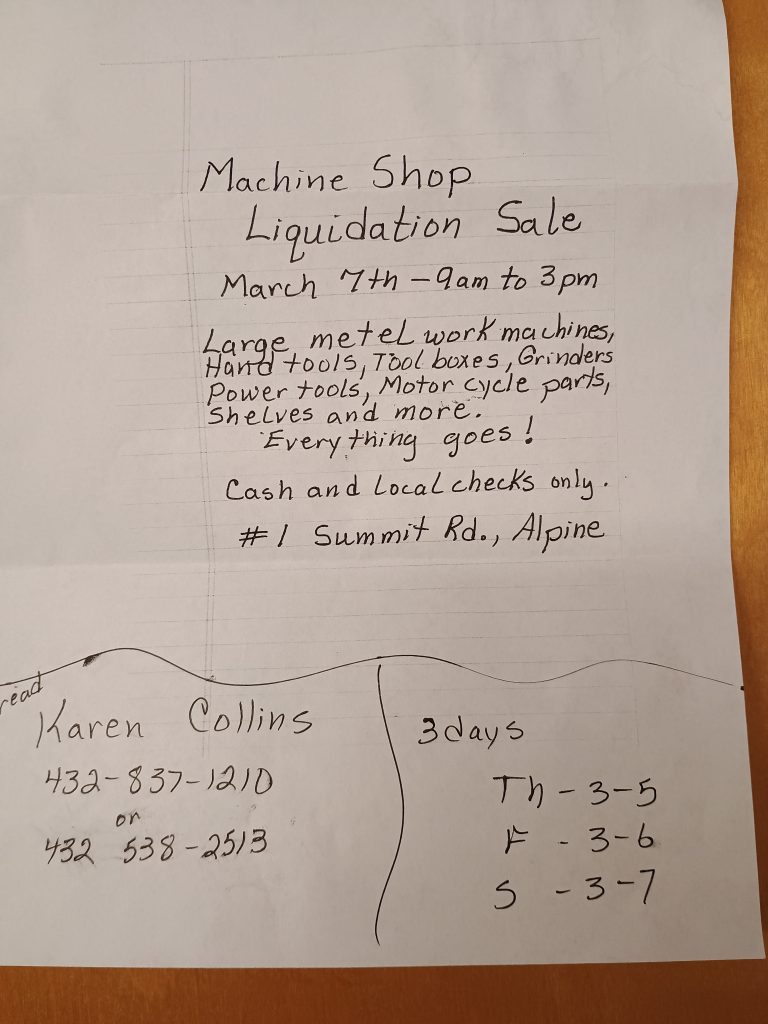 Machine Shop
Liquidation Sale
March 7th - 9am to 3pm
Large metel work machines,
Hand tools, Tool boxes, Grinders
Power tools, Motor cycle parts,
Shelves and more.
Every thing goes!
Cash and Local checks only.
#1 Summit Rd., Alpine
read
Karen Collins
432-837-1210
or
432 538-2513
3 days
Th - 3-5
F - 3-6
S - 3-7